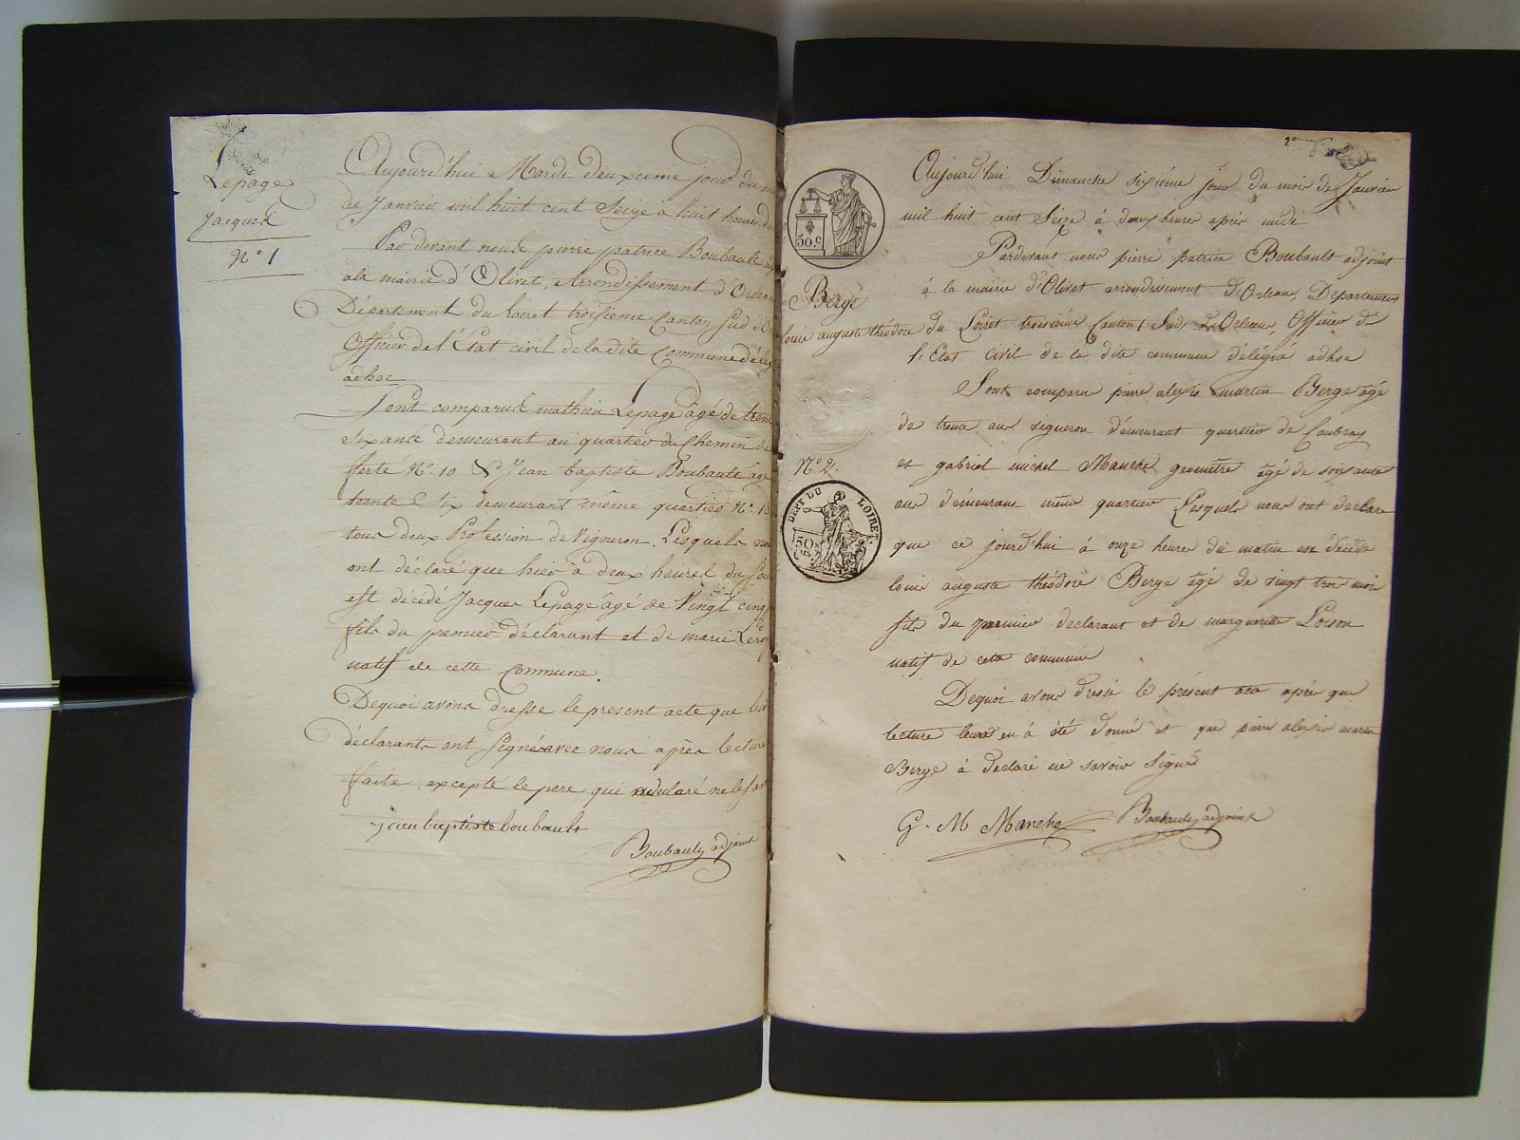 Lepage
Jacques
N° 1
Aujourd'hui Mardi deuxieme jour du
de Janvier mil huit cent Seize a huit heures du
Par devant nous pierre patrice Boubault
ala mairie d'Olivet, Arrondissement d'Orleans
Département du Loiret troisieme Canton Sud d'
Officier de l'État civil de la dite Commune délég
adhoc
Sont comparus mathieu Lepage âgé de trente
Six ans demeurant au quartier du Chemin de
ferté N° 10 & Jean baptiste Boubault âgé
trente & six demeurant même quartier N° 1
tous deux Profession de Vigneron. Lesquels nous
ont déclaré que hier à deux heures du Soir
est décédé Jacques Lepage âgé de Vingt cinq
fils du premier déclarant et de marie Leroy
natif de cette Commune.
Dequoi avons dresse le present acte que les
déclarants ont Signé avec nous après lecture
faite excepté le pere qui a declaré ne le Sav
jean baptiste boubault
Boubault adjoint
2e
50.C
Bergé
louis auguste théodore
N° 2.
DEPT DU LOIRET
50
Aujourd'hui Dimanche sixième jour du moi de Janvier
mil huit cent Seize à deux heures après midi
Pardevant nous pierre patrice Boubault adjoint
à la mairie d'Olivet arrondissement d'Orleans, Departement
du Loiret troisième Canton Sud d'Orleans, Officier de
l'Etat civil de la dite commune délégué adhoc
Sont comparu piere alexis martin Berge âgé
de trente ans vigneron démeurant quartier de Coubray
et gabriel michel Manche geometre âgé de soixante
ans démeurant même quartier Lesquels nous ont declare
que ce jourd'hui à onze heure du matin est décédé
louis auguste théodore Berge âgé de vingt trois mois
fils du premier declarant et de marguerite Loison
natif de cette commune
Dequoi avons dressé le présent acte après que
lecture leurs en à été donné et que piere alexis martin
Berge à declaré ne savoir Signé
G. M Manche Boubault adjoint